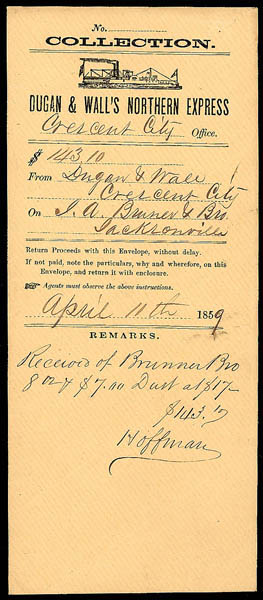 No.
COLLECTION.
DUGAN & WALL'S NORTHERN EXPRESS
Crescent City Office.
$ 143.10
From Dugan & Wall
Crescent City
On J. A. Brunner & Bro.
Jacksonville
Return Proceeds with this Envelope, without delay.
If not paid, note the particulars, why and wherefore, on this
Envelope, and return it with enclosure.
☞ Agents must observe the above instructions.
April 11th 1859
REMARKS.
Received of Brunner Bro
8 oz & $7.10 Dust a $17-
$143.10
Hoffman